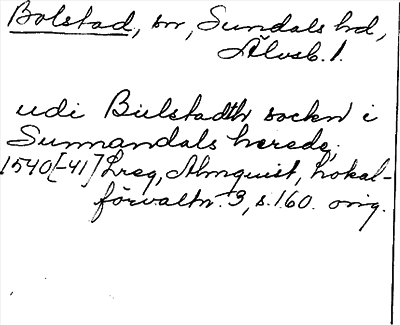 Bolstad, sn, Sundals hd,
Älvsb. l.
udi Bielstadth sockn i
Sunnandals herede,
1540[-41] Lreg, Almquist, Lokal-
förvaltn. 3, s. 160. orig.